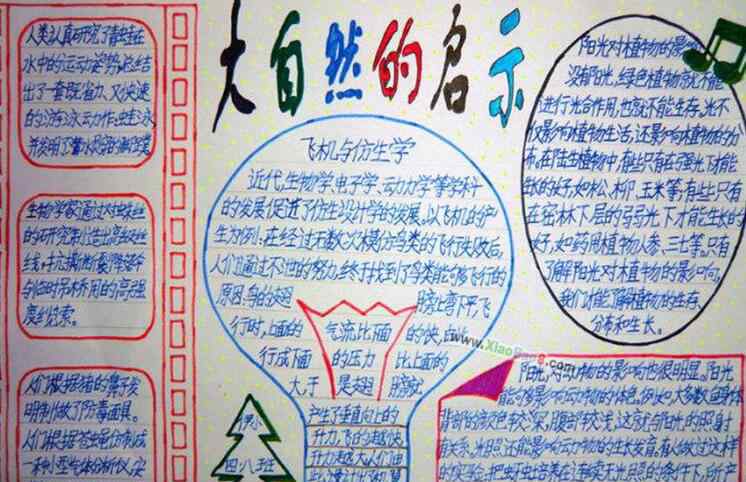 大自然的启示
人类认真研究了青蛙在
水中的运动姿势,总结
出了一套既省力、又快速
的游泳动作:蛙泳
并发明了潜水员的
生物学家通过对蛛丝
的研究制造出高级丝
线,抗撕断降落伞
与临时吊桥用的高强
度绳索。
人们根据猪的鼻子发
明制做了防毒面具。
人们根据苍蝇仿制成
一种小型气体分析仪,安
飞机与仿生学
近代生物学、电子学、动力学等学科
的发展促进了仿生设计学的发展。以飞机的产
生为例:在经过无数次模仿鸟类的飞行失败后,
人们通过不泄的努力,终于找到了鸟类能够飞行的
原因:鸟的翅膀上弯下平,飞
行时,上面的气流比下面的快,由此
行成下面的压力比上面的
大,于是翅膀就
产生了垂直向上的
升力,飞的越快,
升力越大。人们由
四八班
阳光对植物的影响
没有阳光,绿色植物就不能
进行光合作用,也就不能生存。光不
仅影响植物生活,还影响植物的分
布。在陆生植物中,有些只有在强光下才能
生长的好,如松、柳、玉米等;有些只有
在密林下层的弱光下才能生长的
好,如药用植物人参、三七等。只有
了解阳光对木植物的影响,
我们才能了解植物的生存、
分布和生长。
阳光对动物的影响也很明显。阳光
能够影响动物的体色,例如,大多数
背部的颜色较深,腹部较浅,这就与阳光的照射
有关系。光照还能影响动物的生长发育。有人做过这样
的实验:把蚜虫培养在连续无光照的条件下,所产
www.XiaoBao8.com